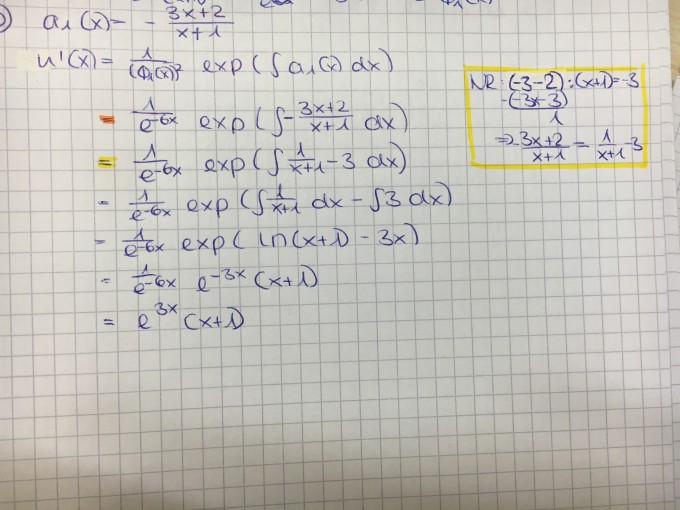 a₁(x) = - 3x+2 / x+1
u'(x) = 1/(φ₁(x))² exp(∫a₁(x) dx)
= 1/e^-6x exp(∫- 3x+2 / x+1 dx)
= 1/e^-6x exp(∫ 1/x+1 - 3 dx)
= 1/e^-6x exp(∫ 1/x+1 dx - ∫3 dx)
= 1/e^-6x exp(ln(x+1) - 3x)
= 1/e^-6x e^-3x (x+1)
= e^3x (x+1)
NR: (-3-2):(x+1)=-3
-(-3x-3)
1
⇒ - 3x+2 / x+1 = 1/x+1 -3